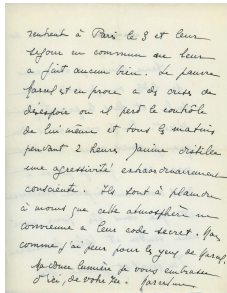 rentrent à Paris le 3 et leur
séjour en commun ne leur
a fait aucun bien. Le pauvre
est en proie à des crises de
désespoir où il perd le contrôle
de lui même et tous les matins
pendant 2 heures Janine distille
une agressivité extraordinairement
consciente. Ils sont à plaindre
à moins que cette atmosphère ne
convienne à leur code secret. Mais
comme j'ai peur pour les yeux de
Ma douce lumière je vous embrasse
d'ici, de votre